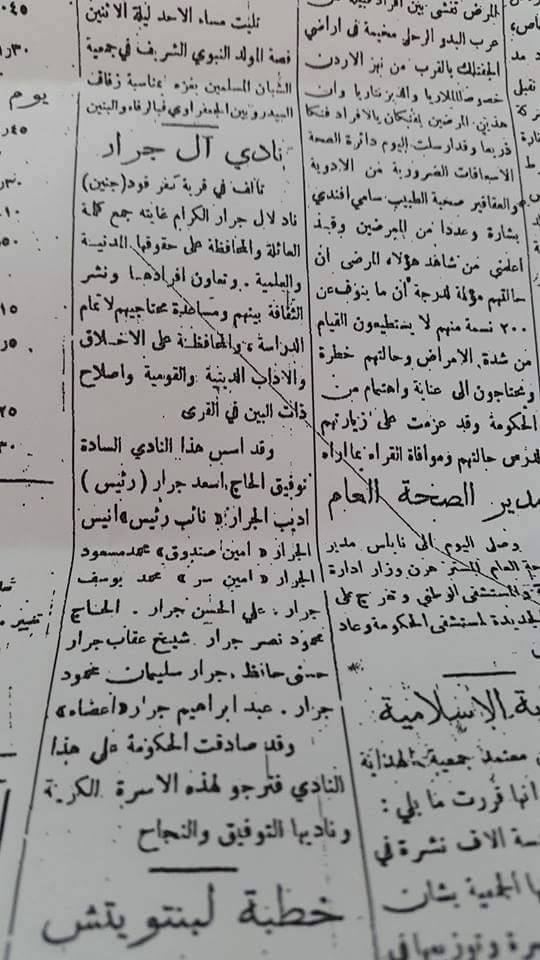 المرض تفشى بين افراد
عرب البدو الرحل مخيمة في اراضي
الجفتلك بالقرب من نهر الاردن
خصوصا الملاريا والديزنتاريا وان
هذين المرضين يفتكان بالافراد فتكا
ذريعا وقد ارسلت اليوم دائرة الصحة
الاسعافات الضرورية من الادوية
والعقاقير صحبة الطبيب سامي افندي
بشارة وعددا من الممرضين وقد
اعلمني من شاهد هؤلاء المرضى ان
حالتهم مؤلمة لدرجة أن ما ينوف عن
٢٠٠ نسمة منهم لا يستطيعون القيام
من شدة الامراض وحالتهم خطرة
ويحتاجون الى عناية واهتمام من
الحكومة وقد عزمت على زيارتهم
لدرس حالتهم وموافاة القراء بما اراه
مدير الصحة العام
وصل اليوم الى نابلس مدير
العام المستر هرن وزار ادارة
والمستشفى الوطني وتفرج على
الجديدة لمستشفى الحكومة وعاد
الاسلامية
معتمد جمعية الهداية
انها قررت ما يلي :
الاف نشرة في
الجمعية بشان
وتوزيعها في
تليت مساء الاحد ليلة الاثنين
قصة المولد النبوي الشريف في جمعية
الشبان المسلمين بغزه بمناسبة زفاف
السيد روبين الجعفراوي فبالرفاء والبنين
نادي آل جرار
تالف في قرية صفر فود (جنين)
ناد لال جرار الكرام غايته جمع كلمة
العائلة والمحافظة على حقوقها المدنية
والعلمية . وتعاون افرادها ونشر
الثقافة بينهم ومساعدة محتاجيهم لاتمام
الدراسة ، والمحافظة على الاخلاق
والاداب الدينية والقومية واصلاح
ذات البين في القرى
وقد اسس هذا النادي السادة
توفيق الحاج اسعد جرار ( رئيس )
اديب الجرار « نائب رئيس » انيس
الجرار « امين صندوق » محمد مسعود
الجرار « امين سر » محمد يوسف
جرار . علي الحسن جرار . الحاج
محمود نصر جرار شيخ عقاب جرار
حسني حافظ جرار سليمان محمود
جرار . عبد ابراهيم جرار «اعضاء»
وقد صادقت الحكومة على هذا
النادي فنرجو لهذه الاسرة الكريمة
وناديها التوفيق والنجاح
خطبة لبنتويتش
يوم